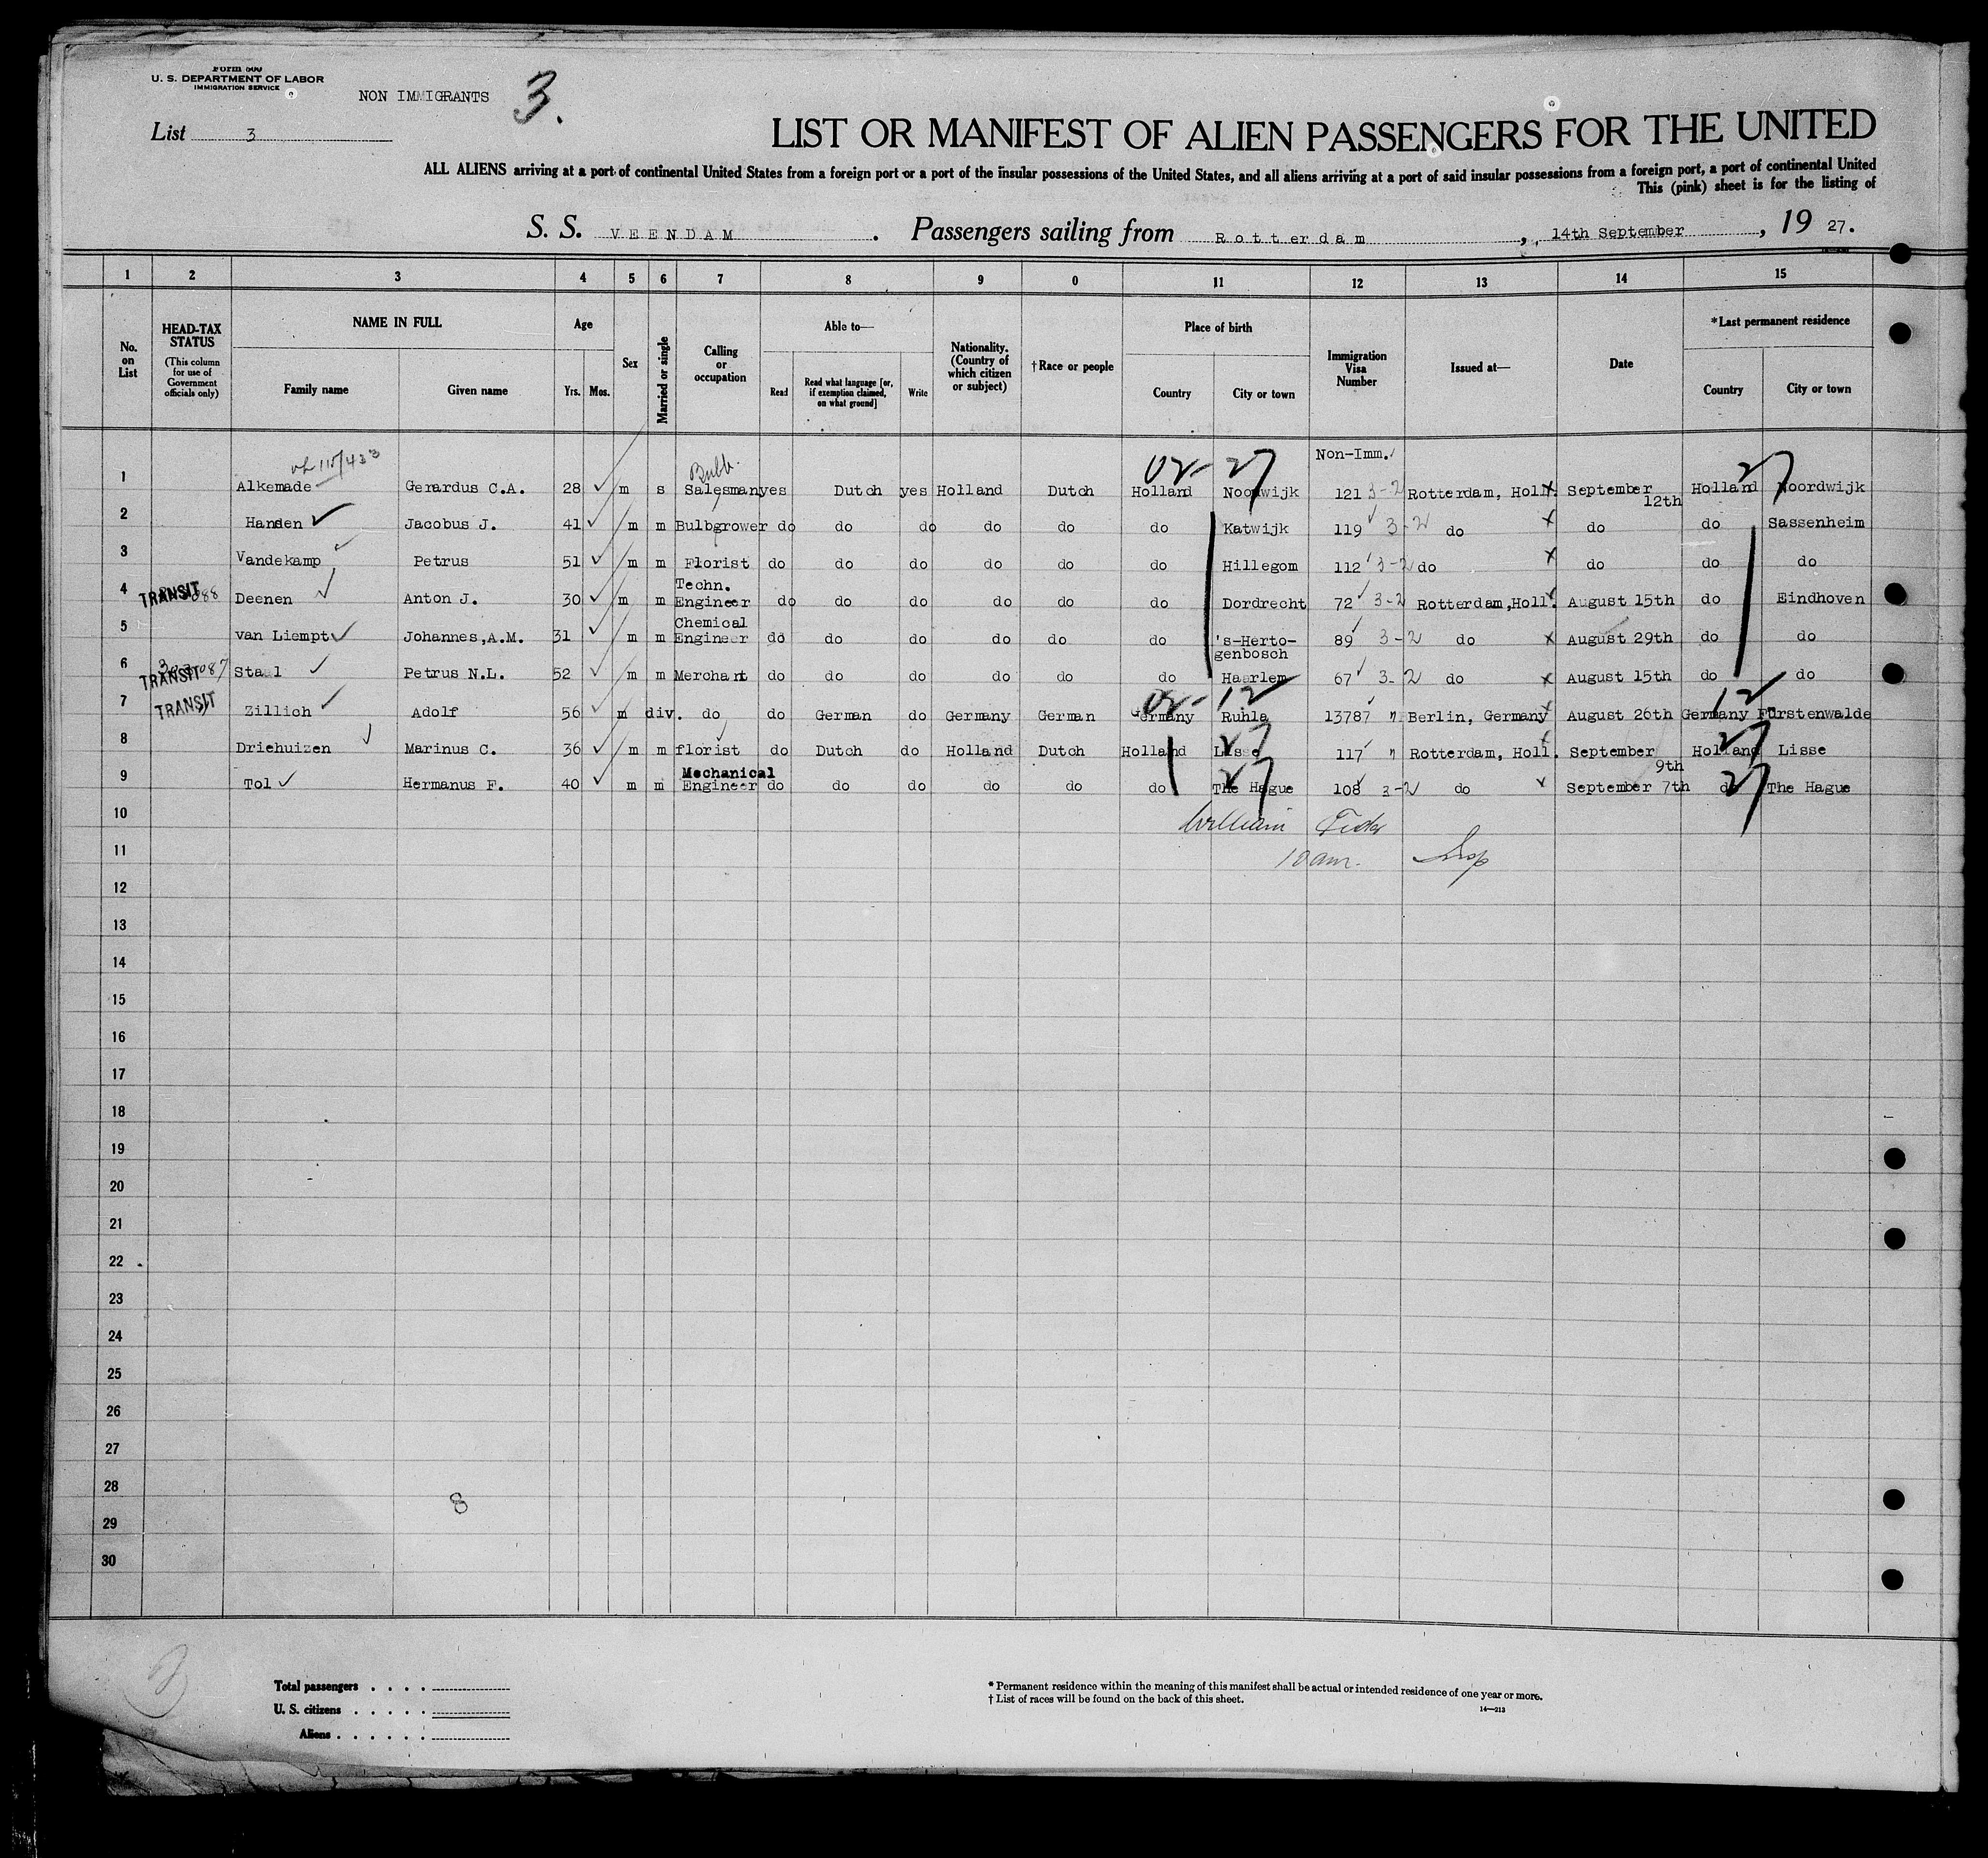 Form 500
U. S. DEPARTMENT OF LABOR
IMMIGRATION SERVICE
NON IMMIGRANTS 3.
List 3
LIST OR MANIFEST OF ALIEN PASSENGERS FOR THE UNITED
ALL ALIENS arriving at a port of continental United States from a foreign port or a port of the insular possessions of the United States, and all aliens arriving at a port of said insular possessions from a foreign port, a port of continental United
This (pink) sheet is for the listing of
S. S. VEENDAM . Passengers sailing from Rotterdam , 14th September , 19 27.
1 2 3 4 5 6 7 8 9 0 11 12 13 14 15
No. on List
HEAD-TAX STATUS
(This column for use of Government officials only)
NAME IN FULL
Family name Given name
Age
Yrs. Mos.
Sex
Married or single
Calling or occupation
Able to—
Read
Read what language [or, if exemption claimed, on what ground]
Write
Nationality. (Country of which citizen or subject)
†Race or people
Place of birth
Country City or town
Immigration Visa Number
Issued at—
Date
*Last permanent residence
Country City or town
Non-Imm.
Bulb.
02- 27 27
1 Alkemade Gerardus C.A. 28 m s Salesman yes Dutch yes Holland Dutch Holland Noordwijk 121 3-2 Rotterdam, Holl. September 12th Holland Noordwijk
2 Hansen Jacobus J. 41 m m Bulbgrower do do do do do do Katwijk 119 3-2 do do do Sassenheim
3 Vandekamp Petrus 51 m m Florist do do do do do do Hillegom 112 3-2 do do do do
4 TRANSIT Deenen Anton J. 30 m m Techn. Engineer do do do do do do Dordrecht 72 3-2 Rotterdam,Holl. August 15th do Eindhoven
5 van Liempt Johannes,A.M. 31 m m Chemical Engineer do do do do do do 's-Hertogenbosch 89 3-2 do August 29th do do
6 TRANSIT Staal Petrus N.L. 52 m m Merchant do do do do do do Haarlem 67 3-2 do August 15th do do
02- 12 12
7 TRANSIT Zillich Adolf 56 m div. do do German do Germany German Germany Ruhla 13787 " Berlin, Germany August 26th Germany Fürstenwalde
8 Driehuizen Marinus C. 36 m m florist do Dutch do Holland Dutch Holland Lisse 117 " Rotterdam, Holl. September 9th Holland Lisse
27 27
9 Tol Hermanus F. 40 m m Mechanical Engineer do do do do do do The Hague 108 3-2 do September 7th do The Hague
27 27
10 William
11 10 am. Insp
12
13
14
15
16
17
18
19
20
21
22
23
24
25
26
27
28
8
29
30
Total passengers
U. S. citizens
Aliens
* Permanent residence within the meaning of this manifest shall be actual or intended residence of one year or more.
† List of races will be found on the back of this sheet.
14—213